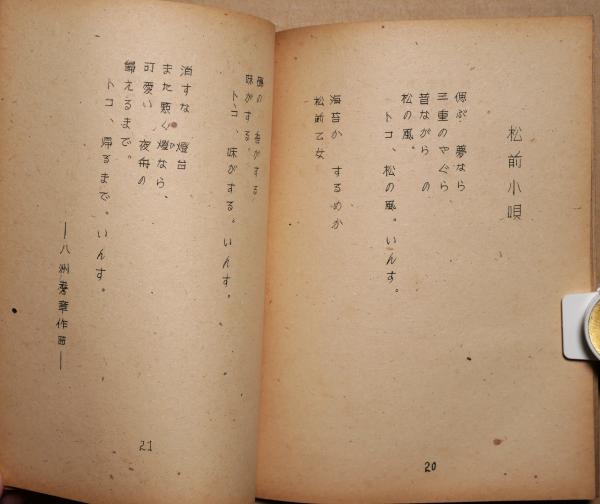 松前小唄
偲ぶ 夢なら
三重のやぐら
昔ながら の
松の風。
トコ、松の風。いんす。
海苔か するめか
松前乙女
20
磯の 香がする
味がする。
トコ、味がする。いんす。
消すな 燈台
また瞬く燈なら、
可愛い 夜舟の
帰えるまで。
トコ、帰るまで。いんす。
―八洲秀章作曲―
21